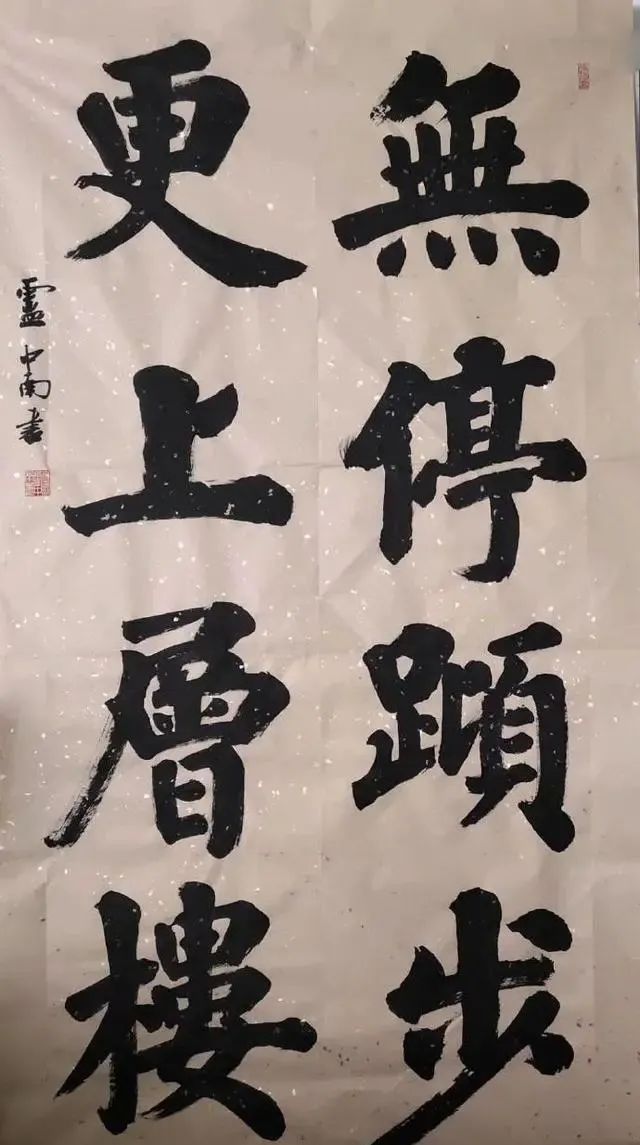 無停蹞步
更上層樓
靈中南書